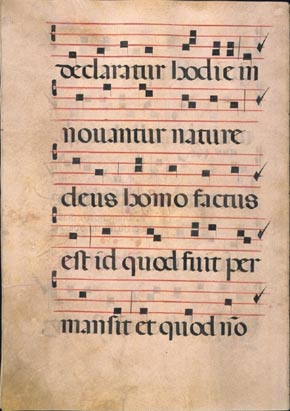 declaratur hodie in
novantur nature
deus homo factus
est id quod fuit per
mansit et quod nõ